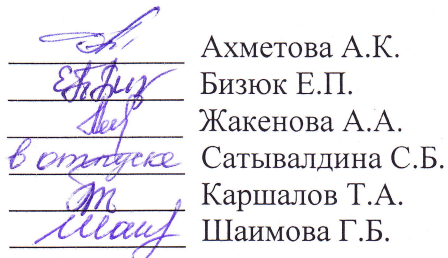 Ахметова А.К.
Бизюк Е.П.
Жакенова А.А.
в отпуске Сатывалдина С.Б.
Каршалов Т.А.
Шаимова Г.Б.